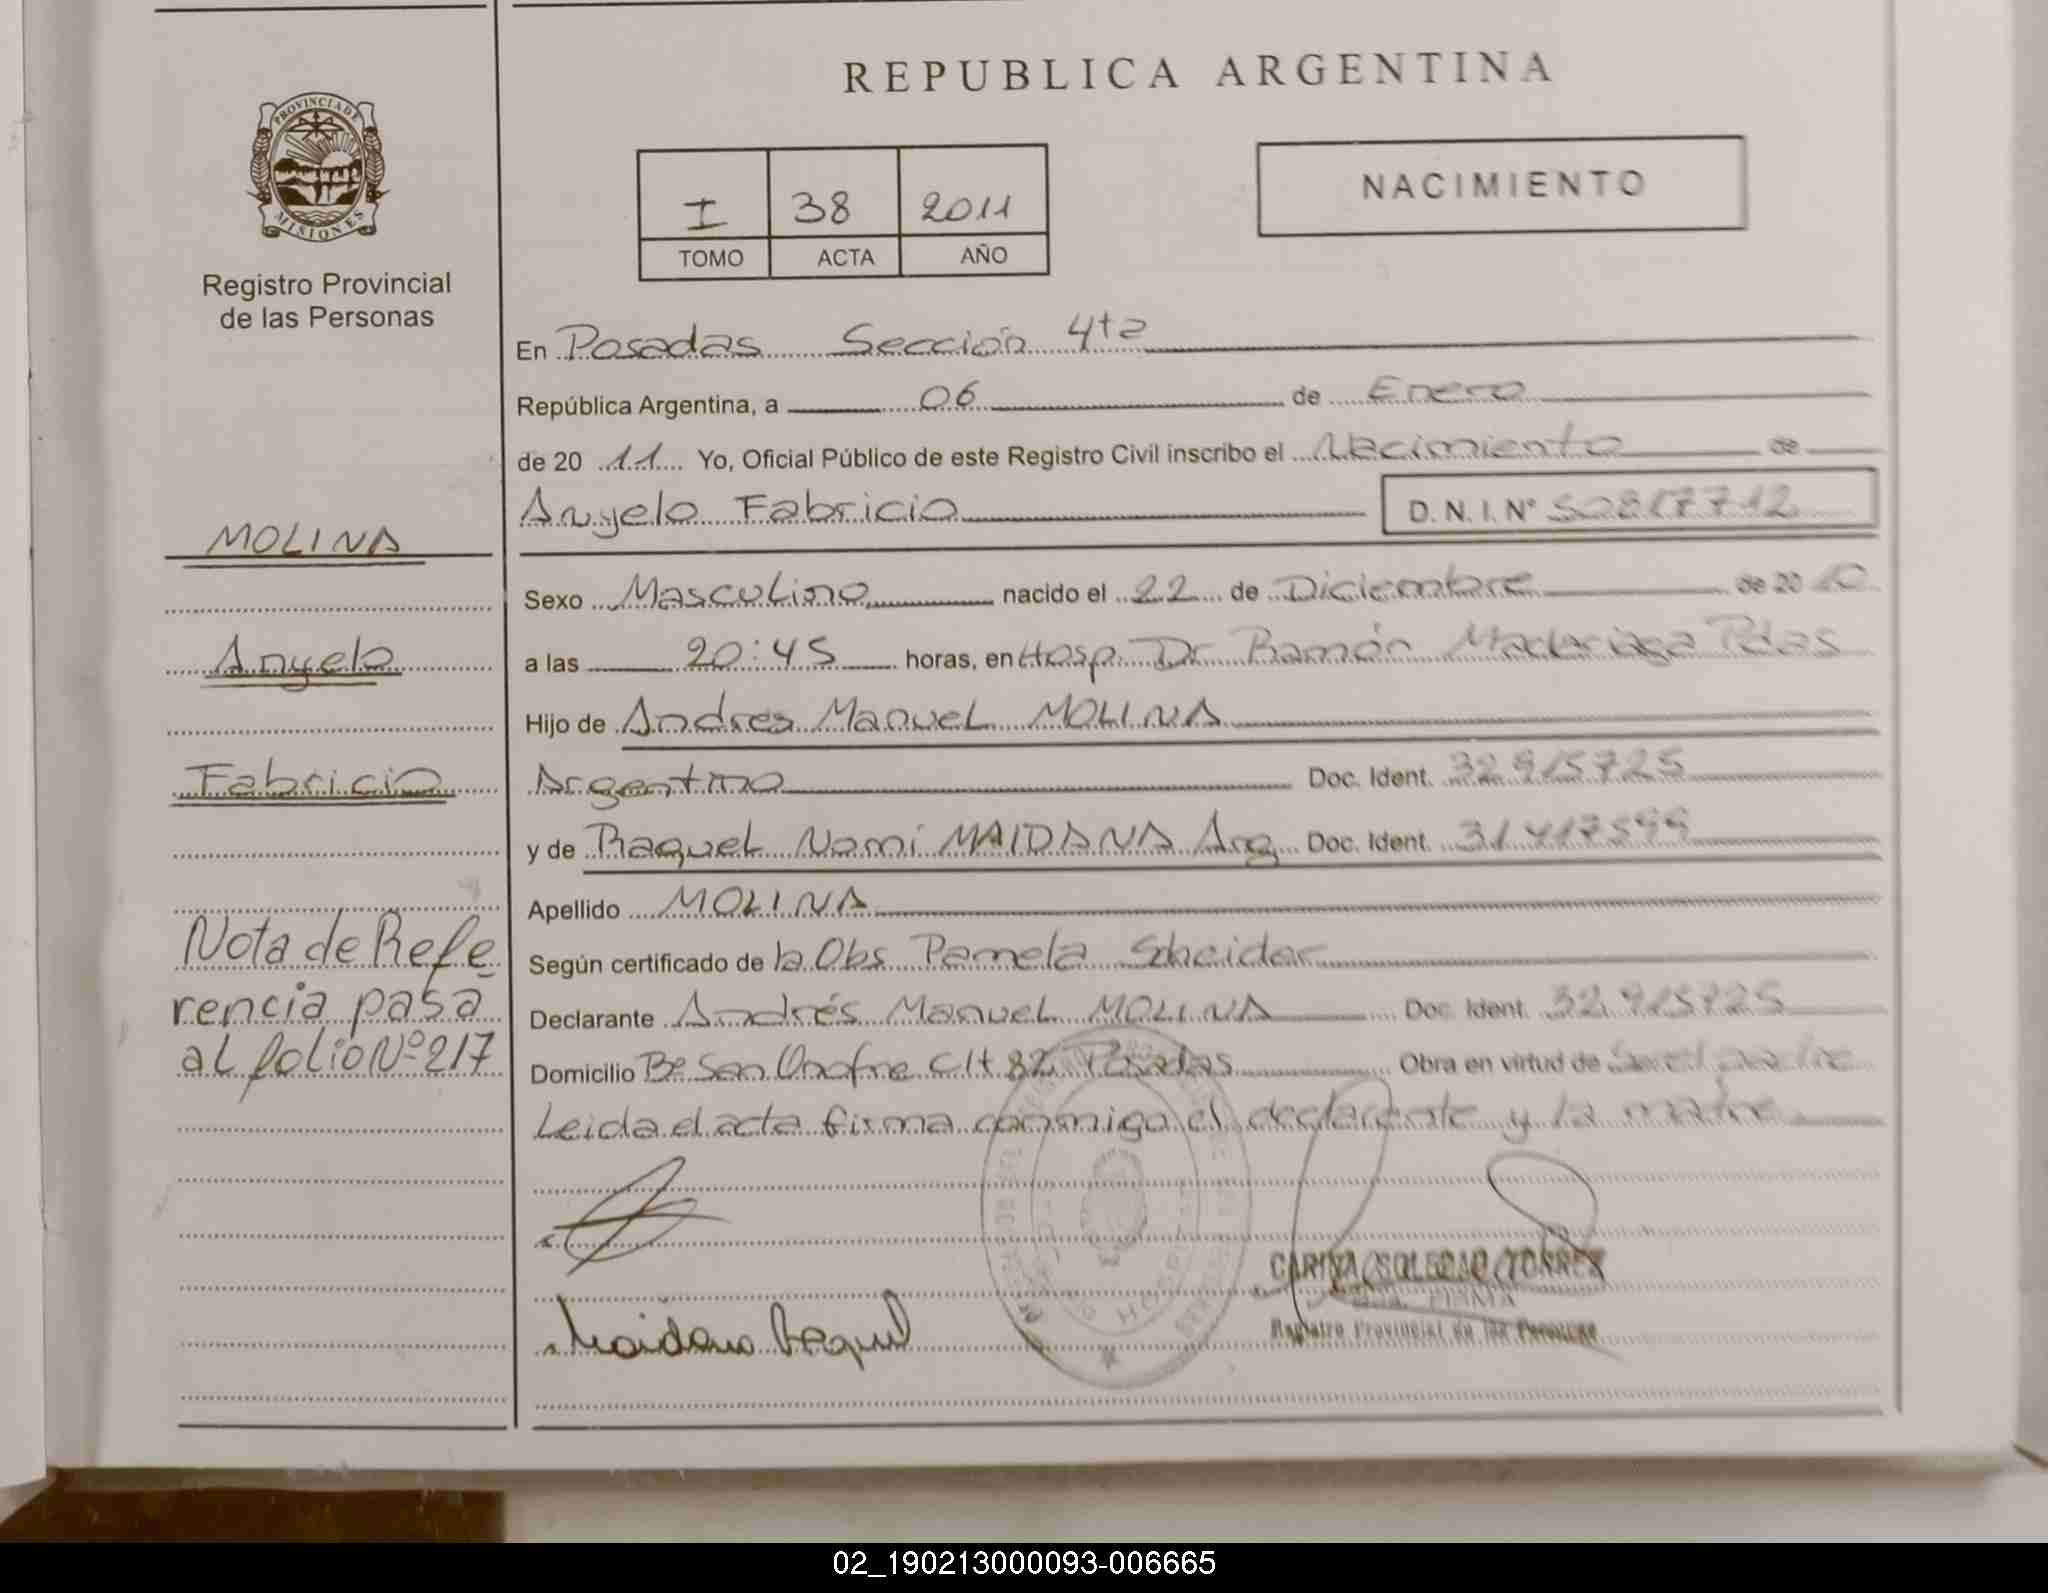 REPUBLICA ARGENTINA
PROVINCIA DE
MISIONES
Registro Provincial
de las Personas
I 38 2011
TOMO ACTA AÑO
NACIMIENTO
En Posadas Sección 4ta
República Argentina, a 06 de Enero
de 20 11 Yo, Oficial Público de este Registro Civil inscribo el Nacimiento de
Anyelo Fabricio D.N.I. Nº 50817712
MOLINA
Anyelo
Fabricio
Nota de Refe
rencia pasa
al folio Nº 217
Sexo Masculino nacido el 22 de Diciembre de 20 10
a las 20:45 horas, en Hosp. Dr Ramón Madariaga Pdas
Hijo de Andres Manuel MOLINA
Argentino Doc. Ident. 32.915725
y de Raquel Nomi MAIDANA Arg Doc. Ident. 31.417599
Apellido MOLINA
Según certificado de la Obs Pamela
Declarante Andrés Manuel MOLINA Doc. Ident. 32.915725
Domicilio Bº San Onofre C/t 82 Posadas Obra en virtud de
Leida el acta firma conmigo el declarante y la madre
Maidana Raquel
CARINA SOLEDAD TORRES
FIRMA
Registro Provincial de las Personas
02_190213000093-006665